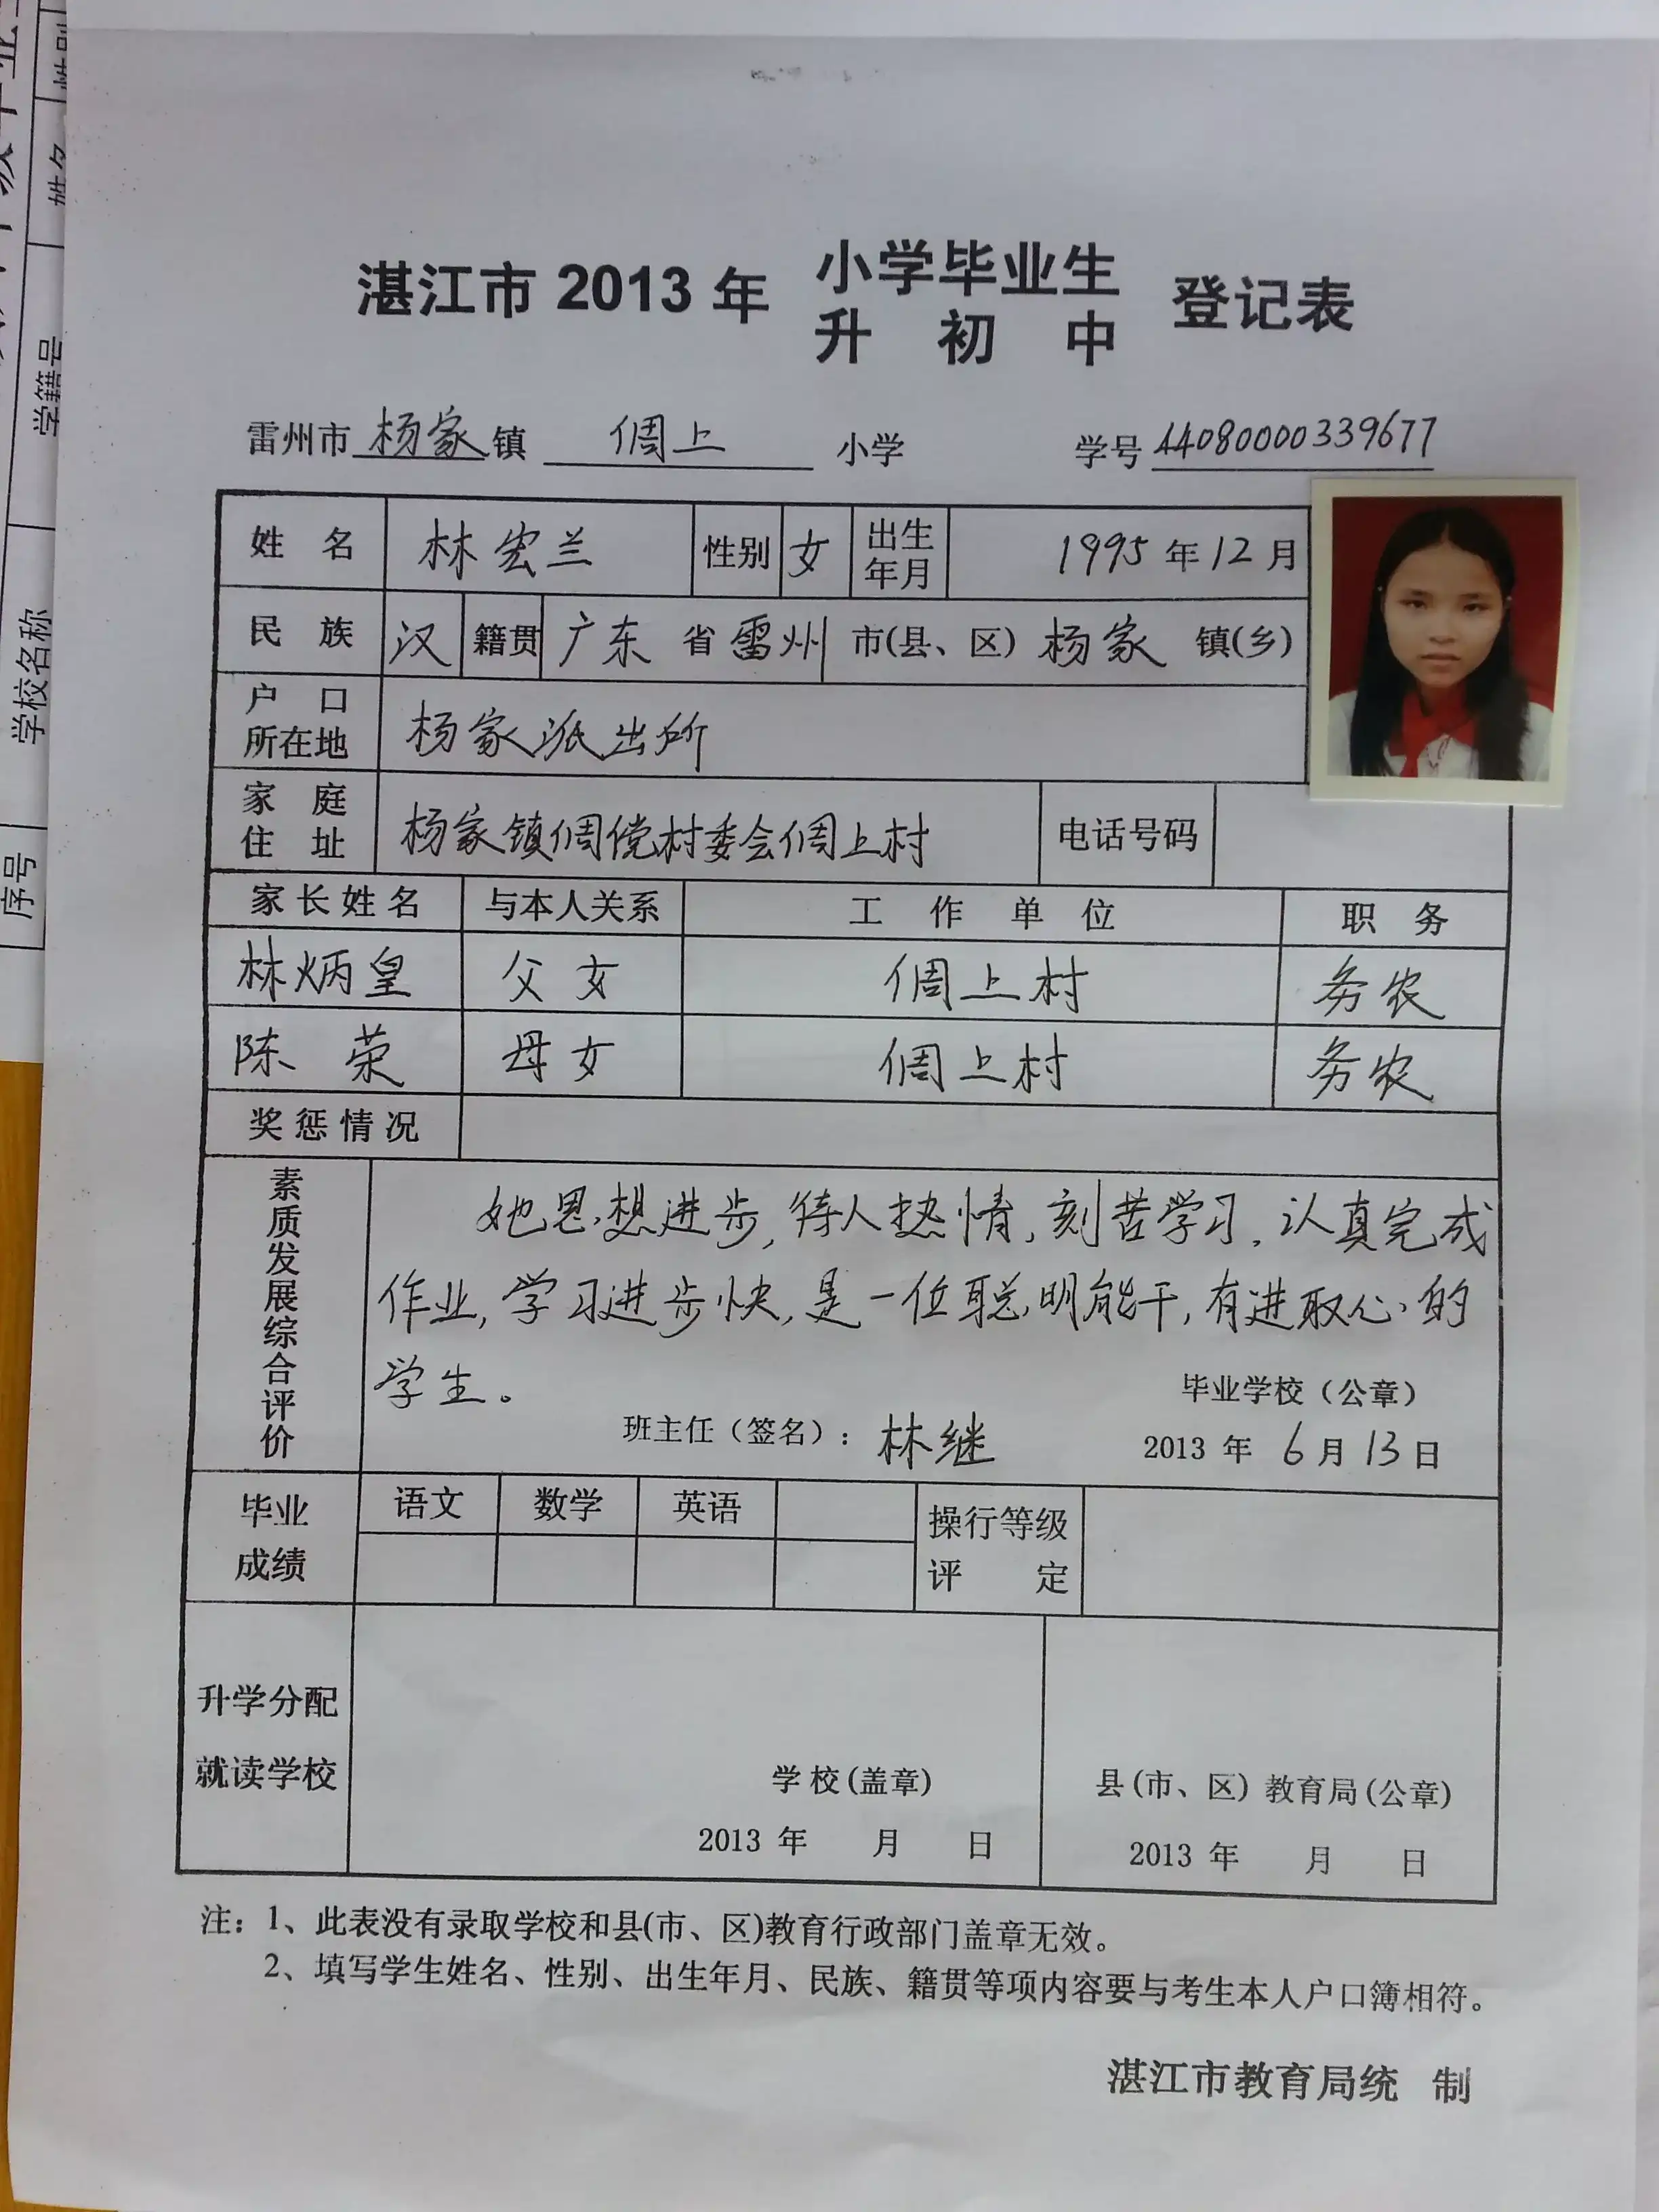 湛江市 2013 年 小学毕业生 登记表
升 初 中
雷州市 杨家 镇 倜上 小学 学号 44080000339677
姓 名 林宏兰 性别 女 出生年月 1995 年 12 月
民 族 汉 籍贯 广东 省 雷州 市(县、区) 杨家 镇(乡)
户 口
所在地 杨家派出所
家 庭
住 址 杨家镇倜傥村委会倜上村 电话号码
家长姓名 与本人关系 工 作 单 位 职 务
林炳皇 父女 倜上村 务农
陈 荣 母女 倜上村 务农
奖惩情况
素质发展综合评价
她思想进步,待人热情,刻苦学习,认真完成
作业,学习进步快,是一位聪明能干,有进取心的
学生。
毕业学校（公章）
班主任（签名）: 林继 2013 年 6 月 13 日
毕业 语文 数学 英语 操行等级
成绩 评 定
升学分配
就读学校
学校(盖章) 县(市、区) 教育局(公章)
2013 年 月 日 2013 年 月 日
注: 1、此表没有录取学校和县(市、区)教育行政部门盖章无效。
2、填写学生姓名、性别、出生年月、民族、籍贯等项内容要与考生本人户口簿相符。
湛江市教育局统 制
姓名
学籍号
学校名称
序号